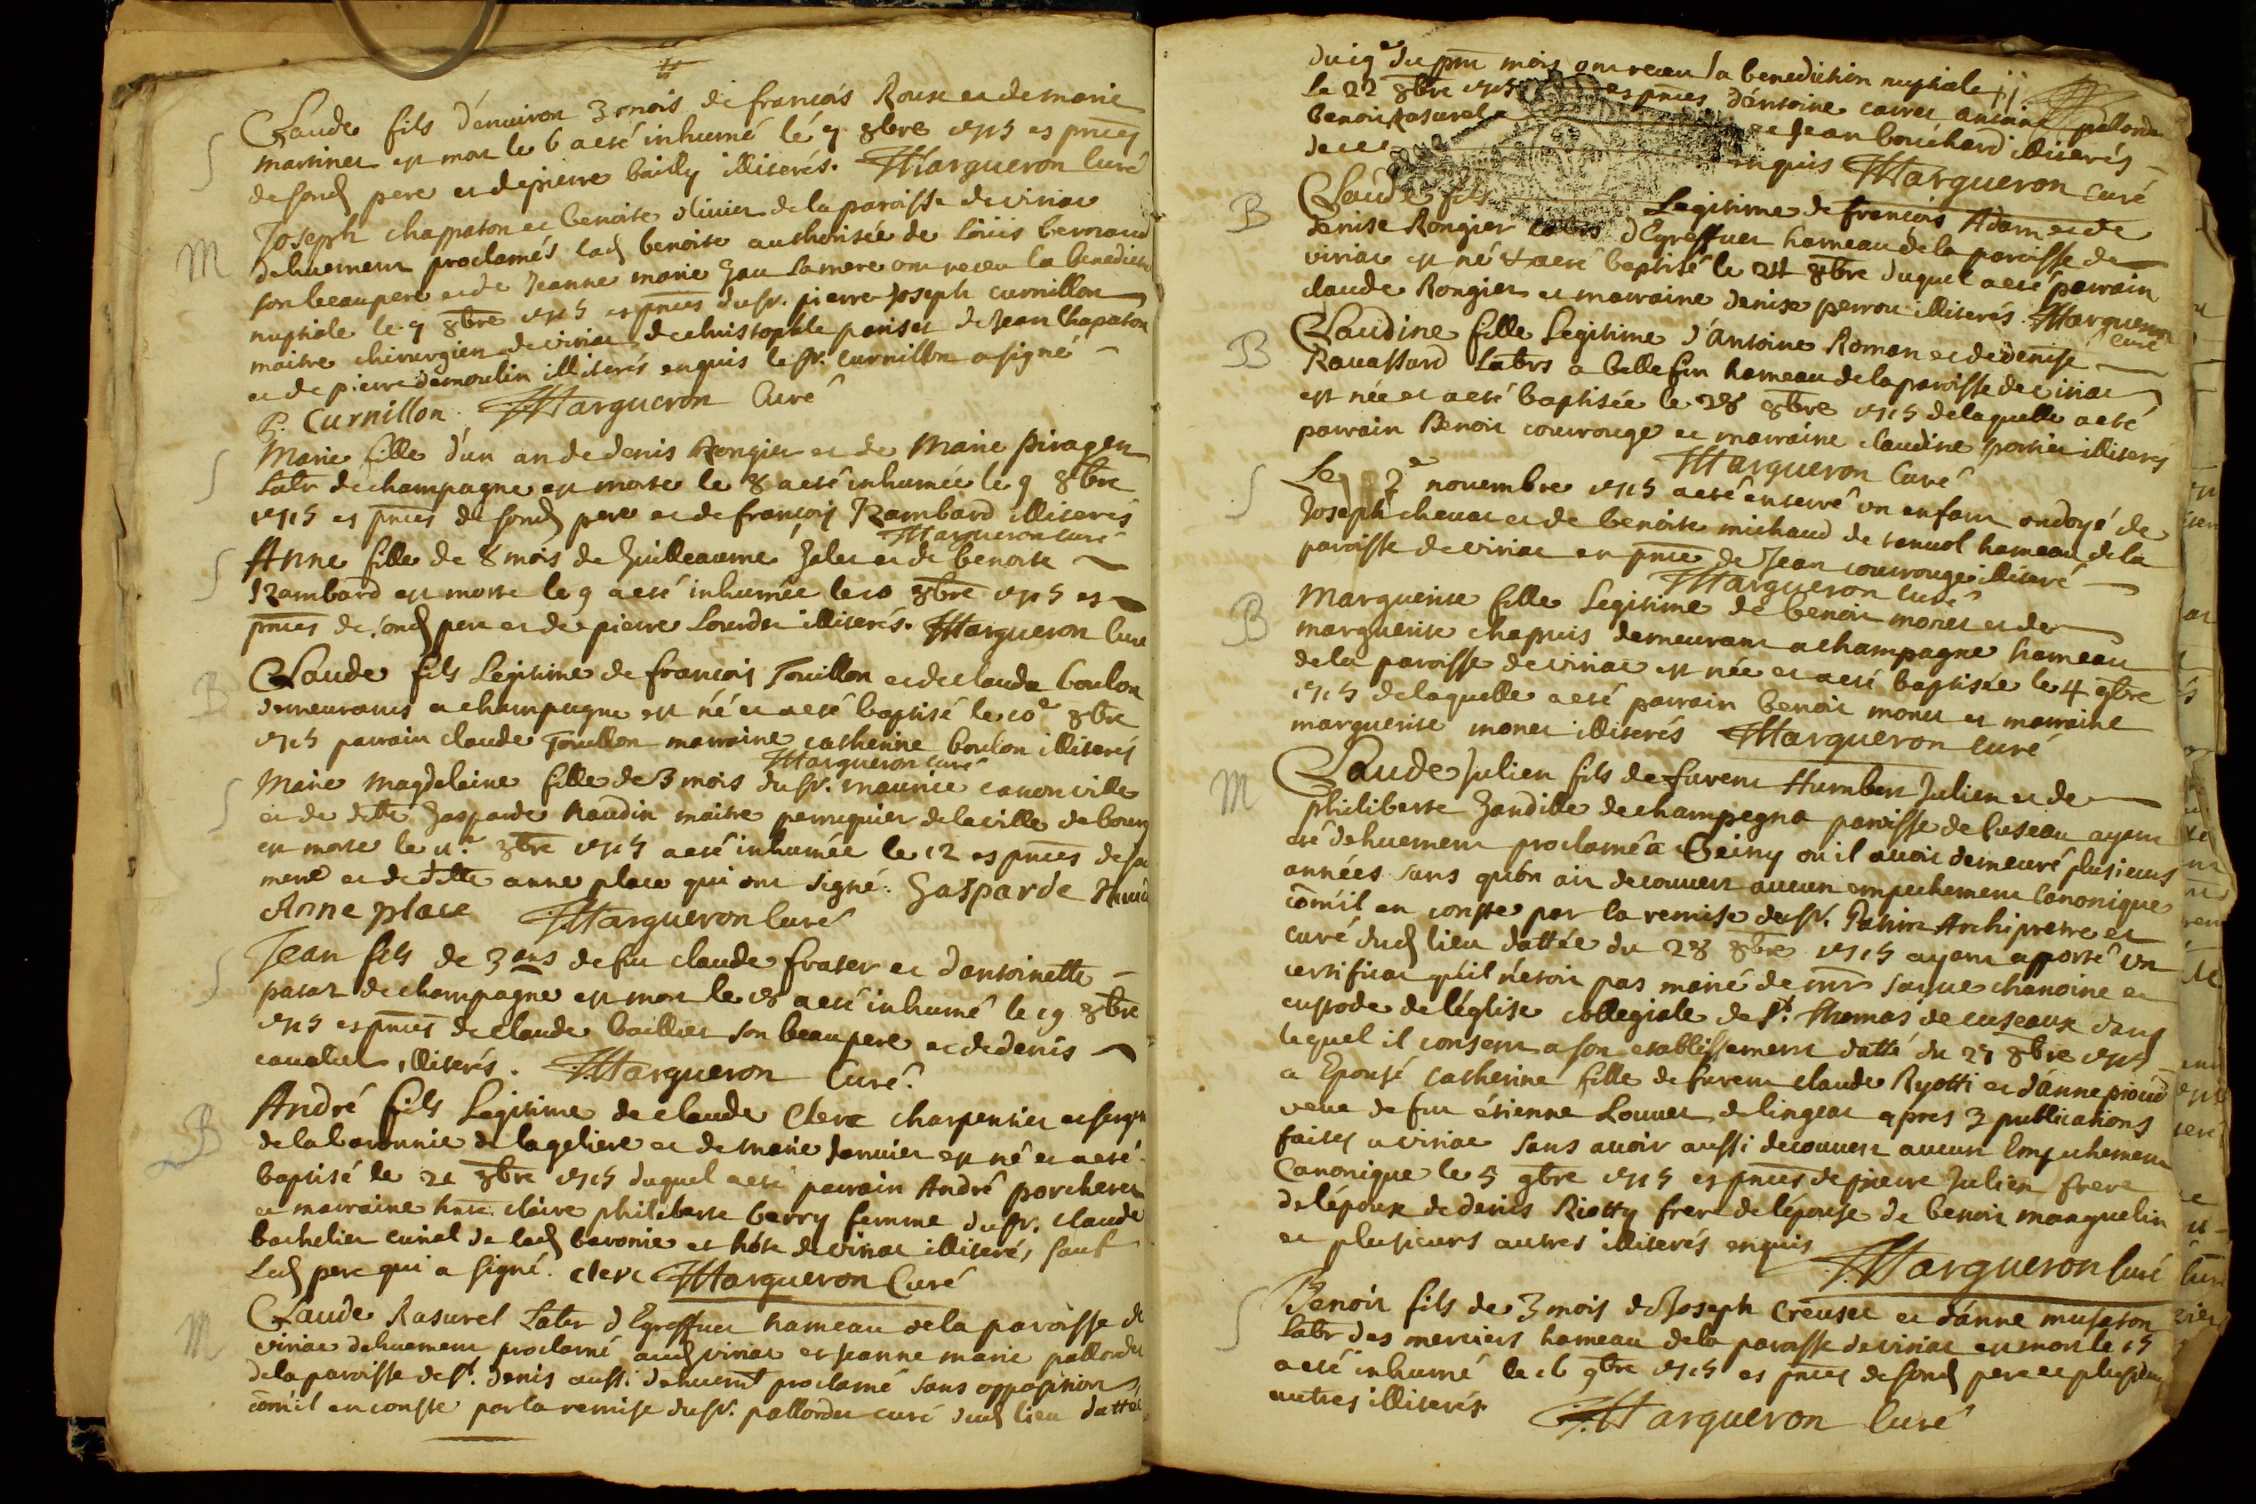 Claude fils d'environ 3 mois de francois Roux et de marie
S
martinet est mort le 6 a eté inhumé le 9 8bre 1715 es pnces
de sond pere et de pierre bailly illiterés. Margueron Curé
Joseph chapaton et benoite olivier de la paroisse de viriat
M
dehuement proclamés lad benoite authorisée de Loüis bernard
son beaupere et de Jeanne marie Jau sa mere ont receu la benedicti
nuptiale le 9 8bre 1715 es pnces du sr. pierre Joseph curnillon
maitre chirurgien de viriat, de christophle pariset de Jean Chapaton
et de pierre demoulin illiterés enquis le sr. Curnillon a signé
P. Curnillon Margueron Curé
Marie fille d'un an de denis Rongier et de Marie piraget
S
Labr de champagne est morte le 8 a eté inhumée le 9 8bre
1715 es pnces de sond pere et de françois Rambard illiterés
Margueron curé
Anne fille de 8 mois de Guilleaume Jalet et de benoite
S
Rambard est morte le 9 a eté inhumée le 10 8bre 1715 es
pnces de sond pere et de pierre Lourdet illiterés. Margueron Curé
Claude fils Legitime de françois Touillon et de claude boulon
B
demeurants a champagne est né et a eté baptisé le 10e 8bre
1715 parrain claude Touillon marraine catherine boulon illiterés
Margueron curé
Marie Magdelaine fille de 3 mois du sr. maurice canonville
S
et de dlle Gasparde Naudin maitre perruquier de la ville de bourg
est morte le 11e 8bre 1715 a eté inhumée le 12 es pnces de sa
mere et de dlle anne place qui ont signé. Gasparde
Anne place Margueron Curé
Jean fils de 3 ans de fut claude frater et d'antoinette
S
parat de champagne est mort le 18 a eté inhumé le 19 8bre
1715 es pnces de claude baillier son beaupere et de denis
cavalier illiterés. Margueron Curé.
André fils Legitime de claude Clerc charpentier et sergt
B
de la baronnie de lageliere et de marie Janvier est né et a eté
baptisé le 21 8bre 1715 duquel a eté parrain André porcheret
et marraine hnte. claire philiberte berry femme du sr. claude
bachelier curial de lad baronie et hôte de viriat illiterés, sauf
Led pere qui a signé. clerc Margueron Curé
Claude Rasurel Labr d'Egreffuet hameau de la paroisse de
M
viriat dehuement proclamé aud viriat et Jeanne marie pallordet
de la paroisse de st. denis aussi dehuemt proclamé sans opposition
com'il en conste par la remise du sr. pallordet curé dud lieu dattée
du 19e du pnt mois ont receu la benediction nuptiale
le 22 8bre 1715 es pnces d'antoine carret antoine pallordet
benoit rasurel et Jean bouchard illiterés
de ce enquis Margueron Curé
Claude fils Legitime de françois Adam et de
B
denise Rongier Labrs d'Egreffuet hameau de la paroisse de
viriat est né & a eté baptisé le 24 8bre duquel a eté parrain
claude Rongier et marraine denise perrou illiterés Margueron
curé
Claudine fille Legitime d'Antoine Roman et de denise
B
Ravassard Labrs a bellefin hameau de la paroisse de viriat
est née et a eté baptisée le 28 8bre 1715 de laquelle a eté
parrain Benoit couvrouge et marraine claudine portier illiterés
Margueron Curé
Le 2e novembre 1715 a eté enterré un enfant ondoyé de
S
Joseph chevat et de benoite michaud de tanuol hameau de la
paroisse de viriat en pnce de Jean couvrouge illiteré
Margueron Curé
Marguerite fille Legitime de benoit monet et de
B
marguerite chapuis demeurants a champagne hameau
de la paroisse de viriat est née et a eté baptisée le 4 9bre
1715 de laquelle a eté parrain benoit monet et marraine
marguerite monet illiterés Margueron Curé
Claude Julien fils de furent Humbert Julien et de
M
philiberte Jandille de champagna paroisse de cuseau ayant
eté dehuement proclamé a Geiny ou il avoit demeuré plusieurs
années sans qu'on ait decouvert aucun empechement Canonique
com'il en conste par la remise du sr. Patin Archipretre et
curé dud lieu dattée du 28 8bre 1715 ayant apporté un
certificat qu'il n'etoit pas marié de mr Sarque chanoine et
custode de l'église collegiale de St. Thomas de cuseaux dans
lequel il consent a son etablissement datté du 27 8bre 1715
a Epousé catherine fille de furent claude Ryotti et d'anne pioud
veuve de fut étienne Louvet de lingeat apres 3 publications
faites a viriat sans avoir aussi decouvert aucun Empechement
Canonique le 5 9bre 1715 es pnces de pierre Julien frere
de l'époux de denis Riotty frere de l'épouse de benoit manguelin
et plusieurs autres illiterés enquis
Margueron Curé
Benoit fils de 3 mois de Joseph Creuset et d'anne museton
S
Labr des merciers hameau de la paroisse de viriat est mort le 15
a eté inhumé le 16 9bre 1715 es pnces de sond pere et plusieurs
autres illiterés
Margueron Curé